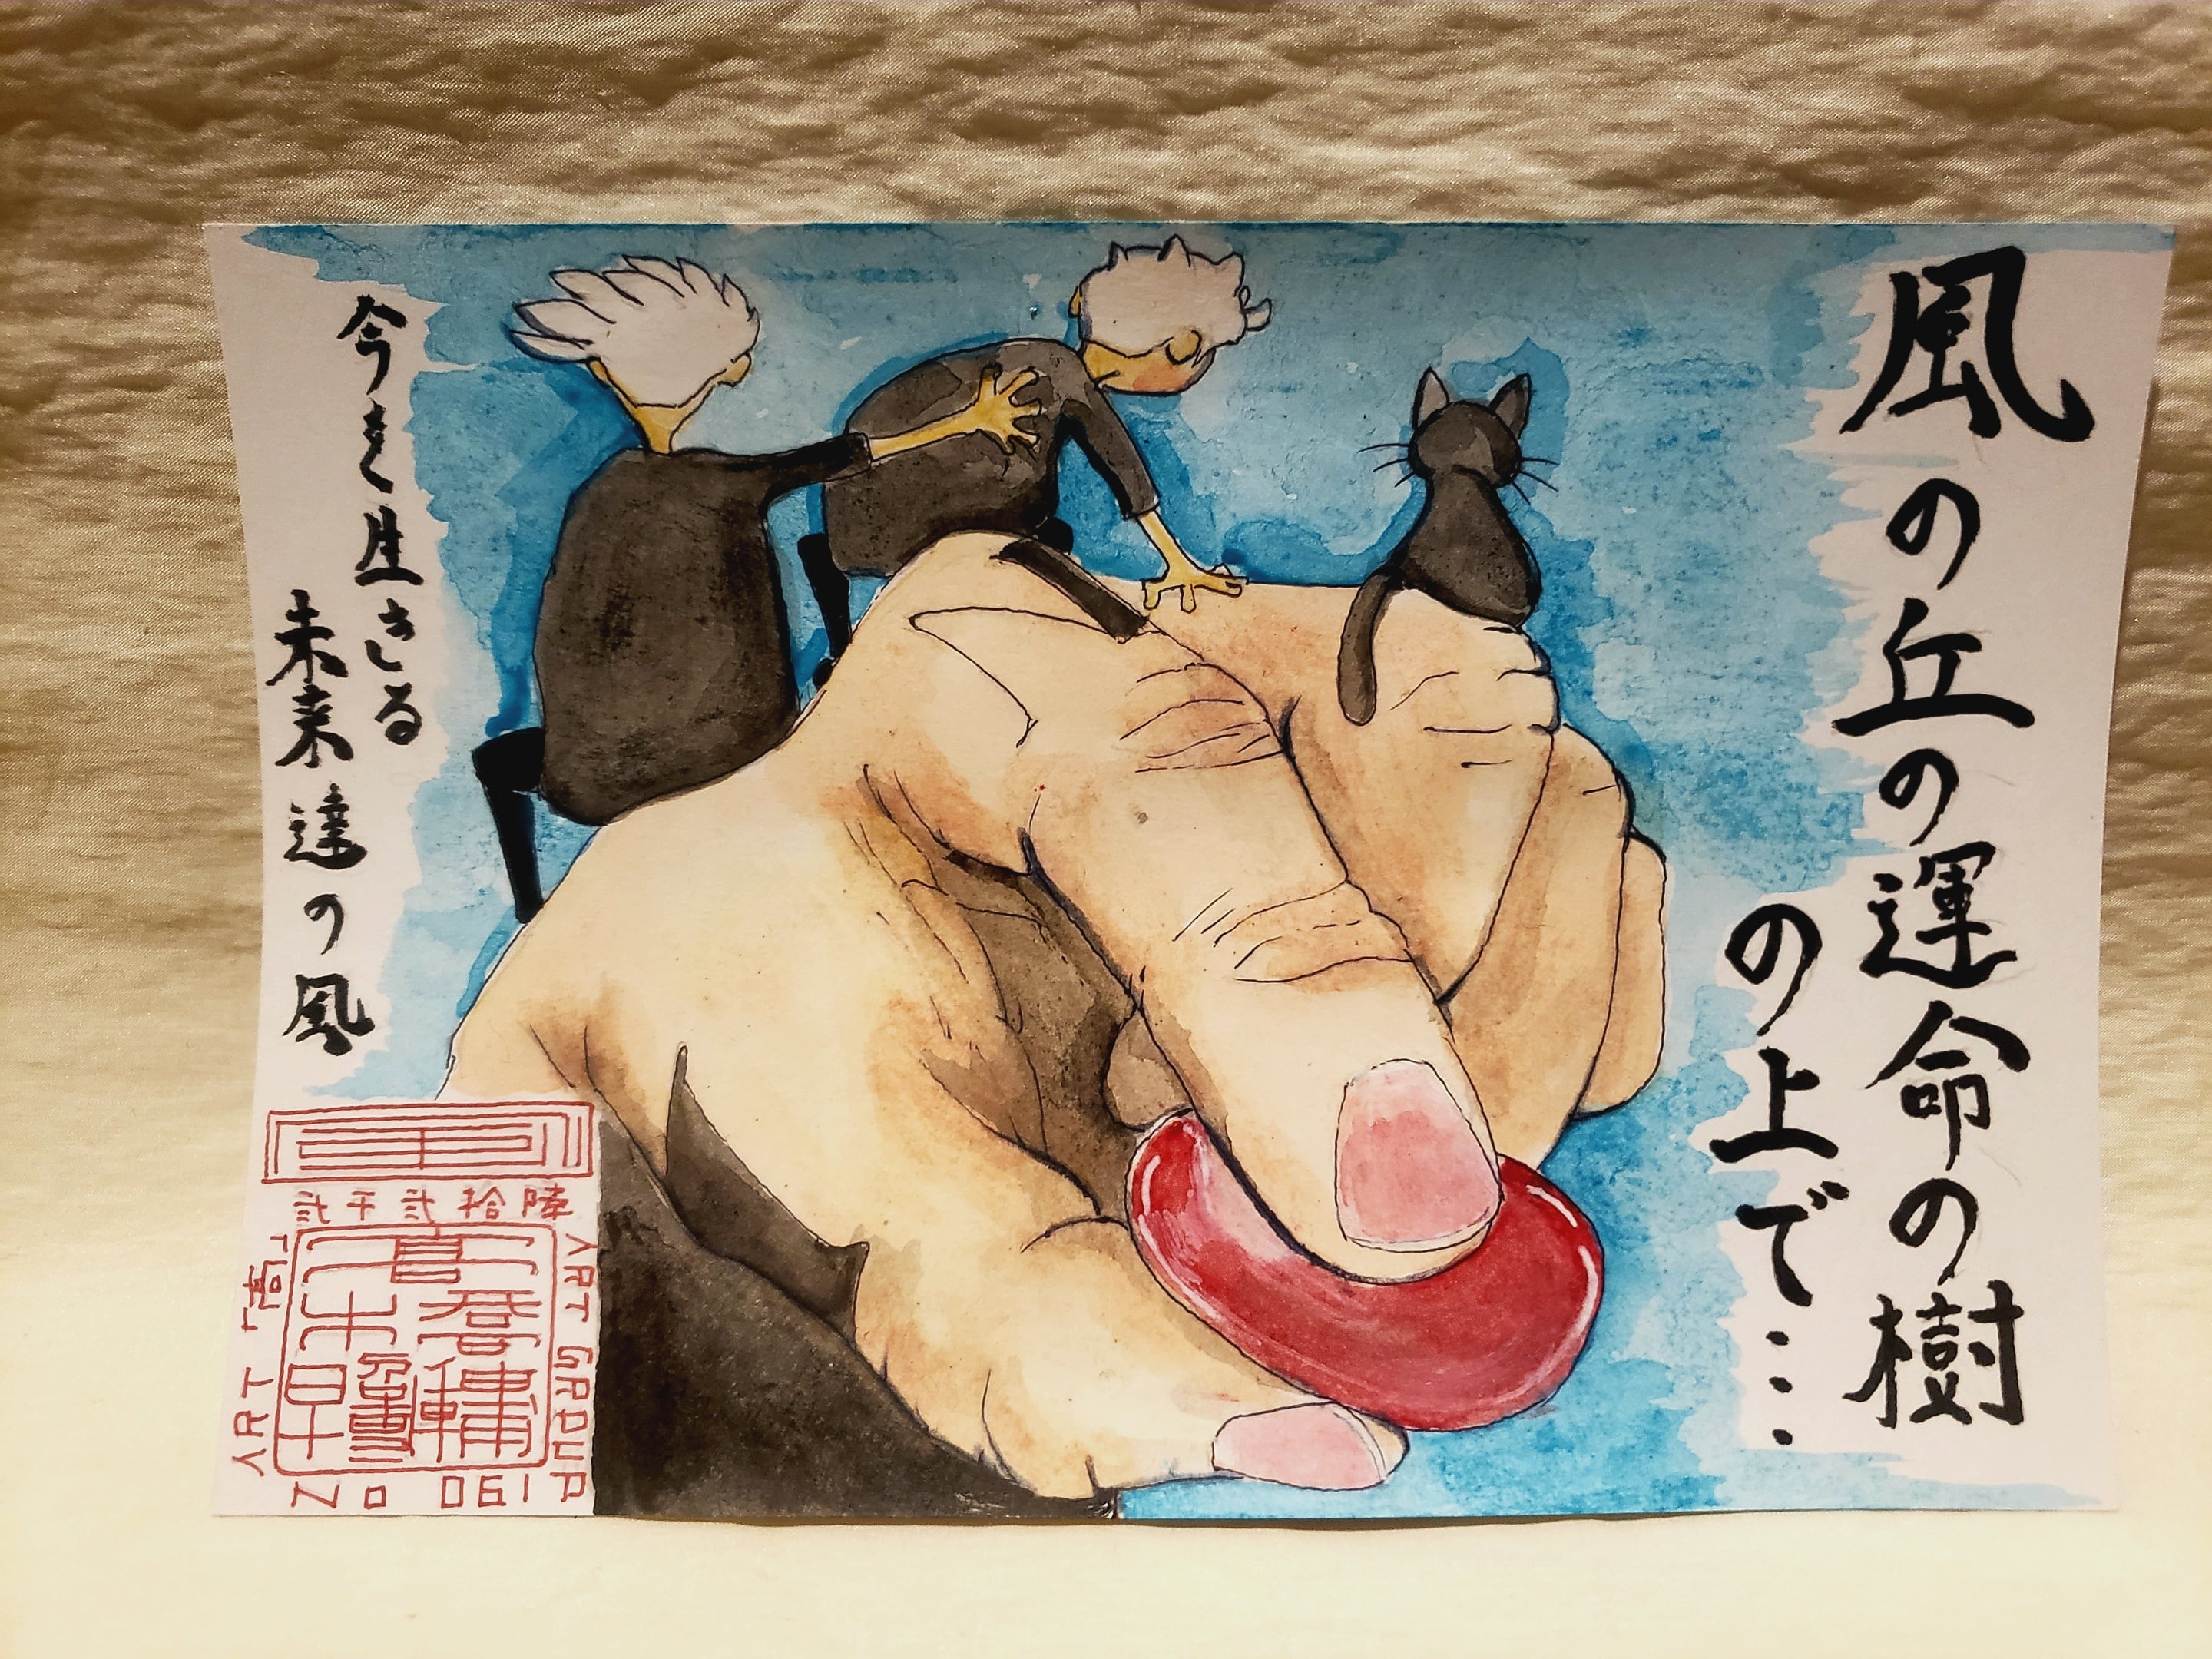 風の丘の運命の樹
の上で…
今を生きる
未来達の風
弐千弐拾陸
ART「高」
ART GROUP
No 061